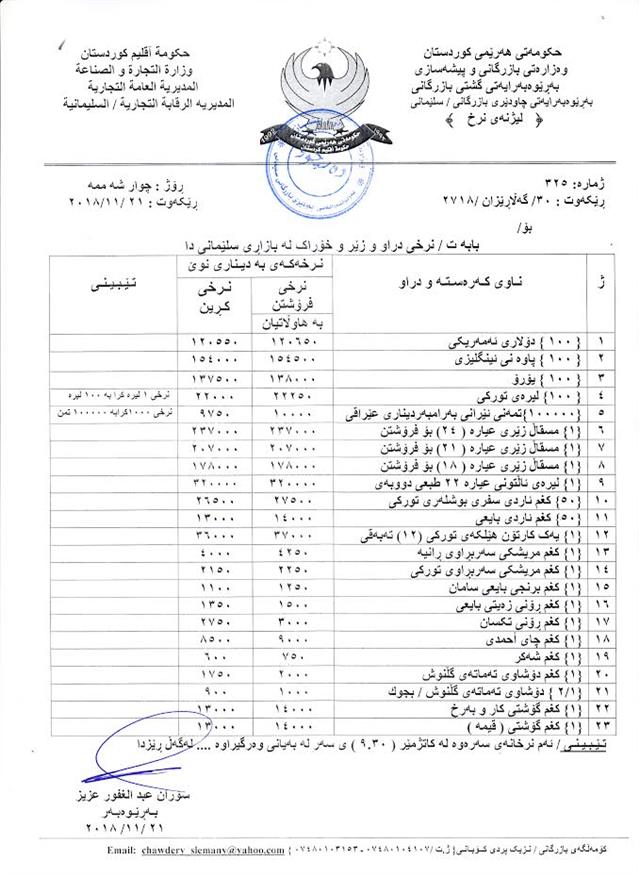 حکومەتی هەرێمی کوردستان
وەزارەتی بازرگانی و پیشەسازی
بەڕێوەبەرایەتی گشتی بازرگانی
بەڕێوەبەرایەتی چاودێری بازرگانی / سلێمانی
﴿ لیژنەی نرخ ﴾
حكومة أقليم كوردستان
وزارة التجارة و الصناعة
المديرية العامة التجارية
المديريه الرقابة التجارية / السليمانية
حکومەتی هەرێمی کوردستان
حكومة أقليم كوردستان
1992
ژمارە: ٣٢٥
ڕێکەوت : ٣٠/ گەڵاڕێزان /٢٧١٨
ڕۆژ : چوار شە ممە
ڕێکەوت : ٢١ /٢٠١٨/١١
بۆ/
بابە ت / نرخی دراو و زێر و خۆراک لە بازاڕی سلێمانی دا
ژ ناوی کەرەستە و دراو نرخەکەی بە دیناری نوێ تێبینی
نرخی فرۆشتن بە هاوڵاتیان نرخی کڕین
١ {١٠٠} دۆلاری ئەمەریکی ١٢٠٦٥٠ ١٢٠٥٥٠
٢ {١٠٠} پاوە نی ئینگلیزی ١٥٤٥٠٠ ١٥٤٠٠٠
٣ {١٠٠} یۆرۆ ١٣٨٠٠٠ ١٣٧٥٠٠
٤ {١٠٠} لیرەی تورکی ٢٢٢٥٠ ٢٢٠٠٠ نرخی ١ لیرە کرا بە ١٠٠ لیرە
٥ {١٠٠٠٠٠}تمەنی ئێرانی بەرامبەردیناری عێراقی ١٠٠٠٠ ٩٧٥٠ نرخی ١٠٠٠کرابە ١٠٠٠٠٠ تمن
٦ {١} مسقاڵ زێری عیارە ( ٢٤) بۆ فرۆشتن ٢٣٧٠٠٠ ٢٣٧٠٠٠
٧ {١} مسقاڵ زێری عیارە ( ٢١) بۆ فرۆشتن ٢٠٧٠٠٠ ٢٠٧٠٠٠
٨ {١} مسقاڵ زێری عیارە ( ١٨) بۆ فرۆشتن ١٧٨٠٠٠ ١٧٨٠٠٠
٩ {١} لیرەی ئاڵتونی عیارە ٢٢ طبعی دووبەی ٣٢٠٠٠٠ ٣٢٠٠٠٠
١٠ {٥٠} کغم ئاردی سفری بوشلەری تورکی ٢٧٥٠٠ ٢٦٥٠٠
١١ {٥٠} کغم ئاردی بایعی ١٤٠٠٠ ١٣٠٠٠
١٢ {١} یەک کارتۆن هێلکەی تورکی (١٢) تەبەقی ٣٧٠٠٠ ٣٦٠٠٠
١٣ {١} کغم مریشکی سەربڕاوی ڕانیە ٤٢٥٠ ٤٠٠٠
١٤ {١} کغم مریشکی سەربڕاوی تورکی ٢٢٥٠ ٢١٥٠
١٥ {١} کغم برنجی بایعی سامان ١٢٥٠ ١١٠٠
١٦ {١} کغم ڕۆنی زەیتی بایعی ١٥٠٠ ١٣٥٠
١٧ {١} کغم ڕۆنی تکسان ٣٠٠٠ ٢٧٥٠
١٨ {١} کغم چای أحمدی ٩٠٠٠ ٨٥٠٠
١٩ {١} کغم شەکر ٧٥٠ ٦٠٠
٢٠ {١} کغم دۆشاوی تەماتەی گڵنوش ٢٠٠٠ ١٧٥٠
٢١ {٢/١} دۆشاوی تەماتەی گڵنوش / بچوک ١٠٠٠ ٩٠٠
٢٢ {١} کغم گۆشتی کار و بەرخ ١٤٠٠٠ ١٣٠٠٠
٢٣ {١} کغم گۆشتی ( قیمە ) ١٤٠٠٠ ١٣٠٠٠
تێبینی / ئەم نرخانەی سەرەوە لە کاتژمێر ( ٩.٣٠ ) ی سەر لە بەیانی وەرگیراوە .... لەگەڵ ڕێزدا
سۆران عبد الغفور عزیز
بەڕێوەبەر
٢١ /٢٠١٨/١١
کۆمەڵگەی بازرگانی / نزیک پردی کۆبانی{ ژ.ت /٠٧٤٨٠١٠٤١٠٧ - ٠٧٤٨٠١٠٣١٥٣ } Email: chawdery_slemany@yahoo.com